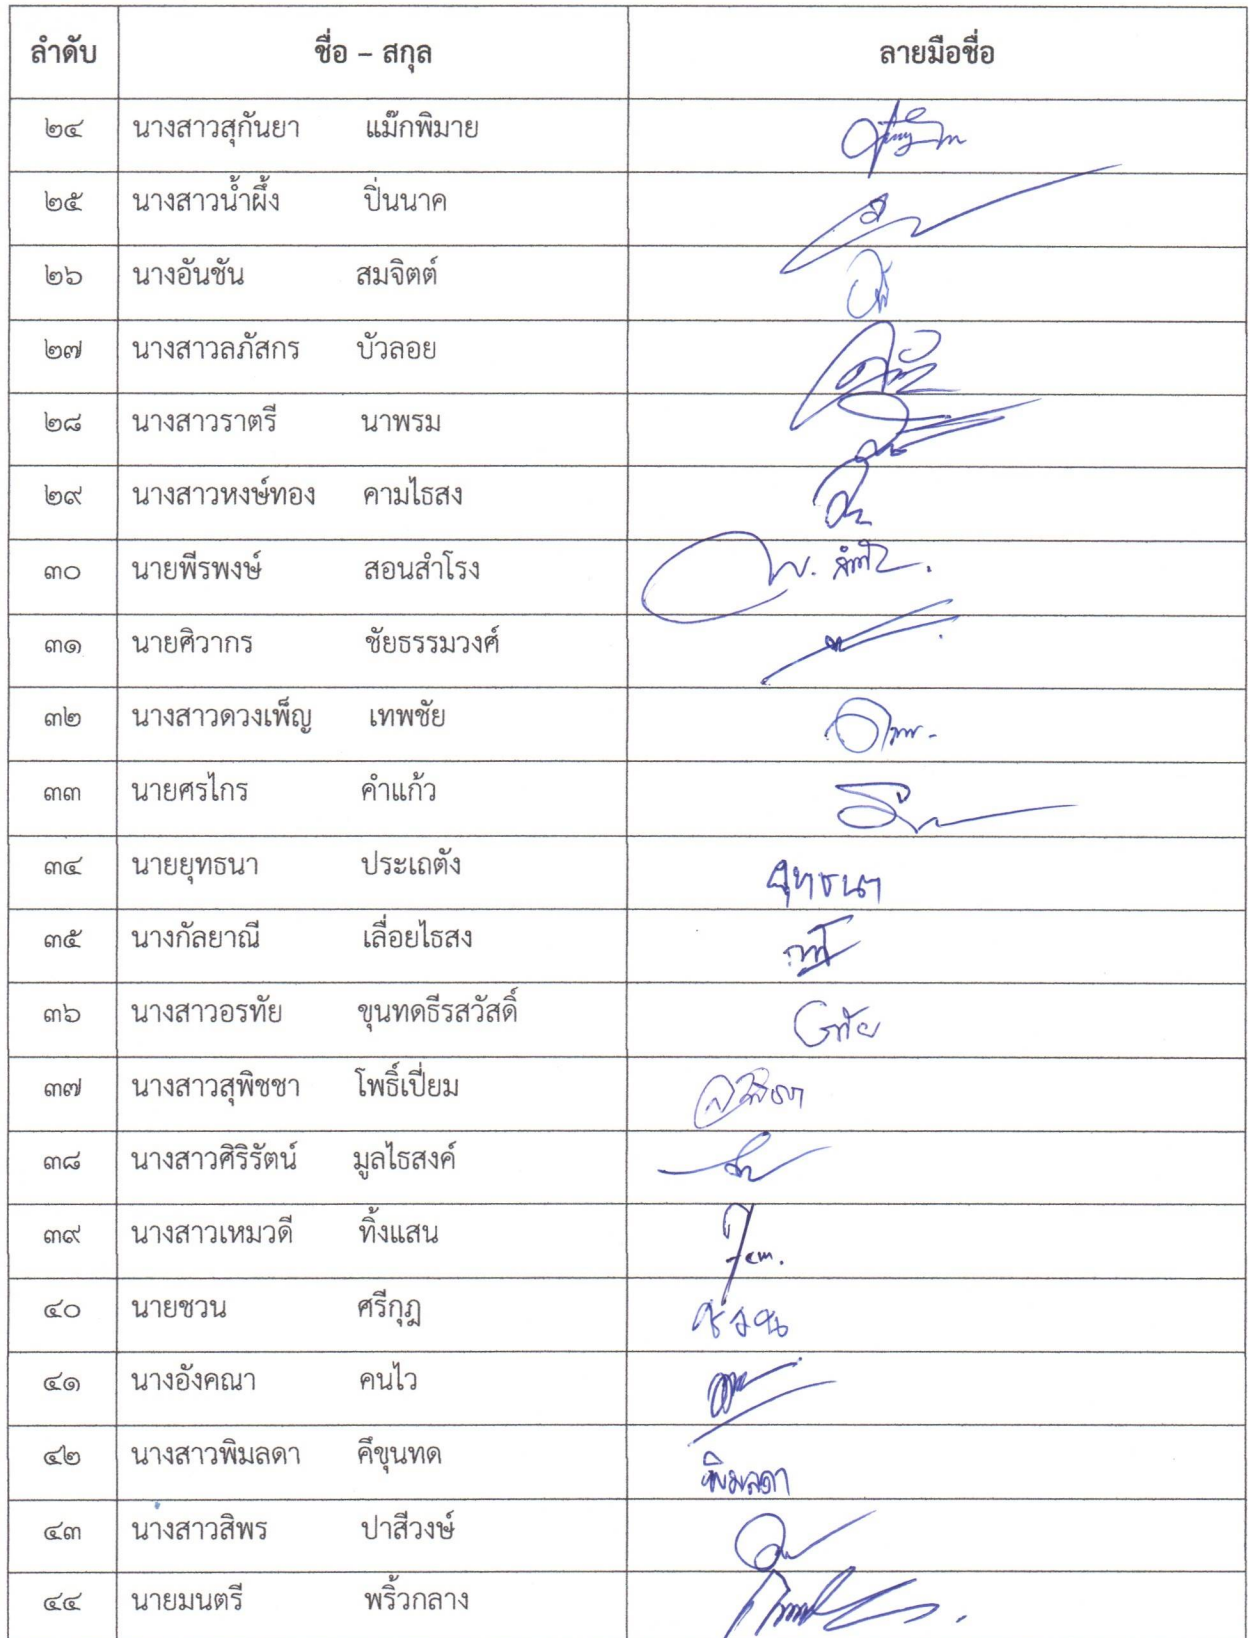 ลำดับ ชื่อ – สกุล ลายมือชื่อ
๒๔ นางสาวสุกันยา แม๊กพิมาย
๒๕ นางสาวน้ำผึ้ง ปิ่นนาค
๒๖ นางอันชัน สมจิตต์
๒๗ นางสาวลภัสกร บัวลอย
๒๘ นางสาวราตรี นาพรม
๒๙ นางสาวหงษ์ทอง คามไธสง
๓๐ นายพีรพงษ์ สอนสำโรง
๓๑ นายศิวากร ชัยธรรมวงศ์
๓๒ นางสาวดวงเพ็ญ เทพชัย
๓๓ นายศรไกร คำแก้ว
๓๔ นายยุทธนา ประเถตัง ยุทธนา
๓๕ นางกัลยาณี เลื่อยไธสง
๓๖ นางสาวอรทัย ขุนทดธีรสวัสดิ์ อรทัย
๓๗ นางสาวสุพิชชา โพธิ์เปี่ยม
๓๘ นางสาวศิริรัตน์ มูลไธสงค์
๓๙ นางสาวเหมวดี ทิ้งแสน
๔๐ นายชวน ศรีกุฎ ชวน
๔๑ นางอังคณา คนไว
๔๒ นางสาวพิมลดา คีขุนทด พิมลดา
๔๓ นางสาวสิพร ปาสีวงษ์
๔๔ นายมนตรี พริ้วกลาง